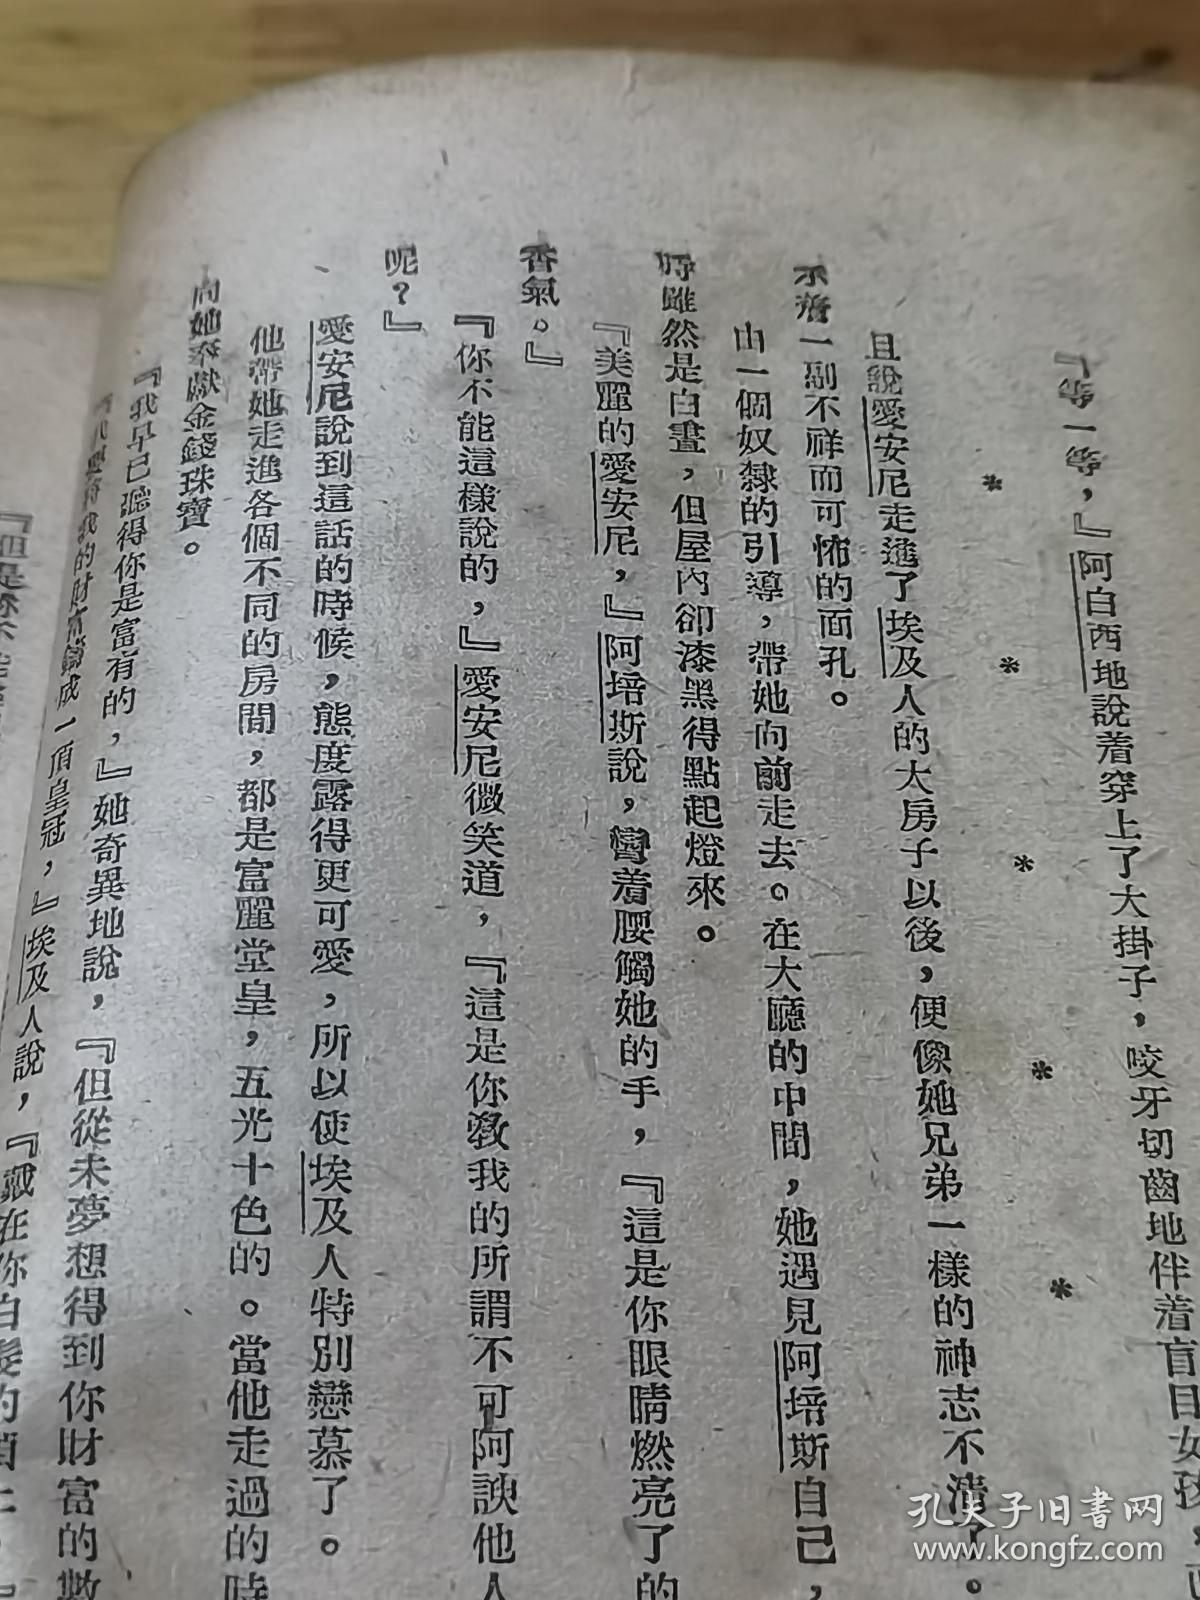 『等一等，』阿白西地說着穿上了大掛子，咬牙切齒地伴着盲目女孩，
＊＊＊＊＊
且說愛安尼走進了埃及人的大房子以後，便像她兄弟一樣的神志不清了。
示着一副不祥而可怖的面孔。
由一個奴隸的引導，帶她向前走去。在大廳的中間，她遇見阿培斯自己，
時雖然是白晝，但屋內卻漆黑得點起燈來。
『美麗的愛安尼，』阿培斯說，彎着腰觸她的手，『這是你眼睛燃亮了的
香氣。』
『你不能這樣說的，』愛安尼微笑道，『這是你教我的所謂不可阿諛他人
呢？』
愛安尼說到這話的時候，態度露得更可愛，所以使埃及人特別戀慕了。
他帶她走進各個不同的房間，都是富麗堂皇，五光十色的。當他走過的時
向她奉獻金錢珠寶。
『我早已聽得你是富有的，』她奇異地說，『但從未夢想得到你財富的數
我的財富鑄成一頂皇冠，』埃及人說，『戴在你白髮的頭上，』
『但是
孔夫子旧书网
www.kongfz.com